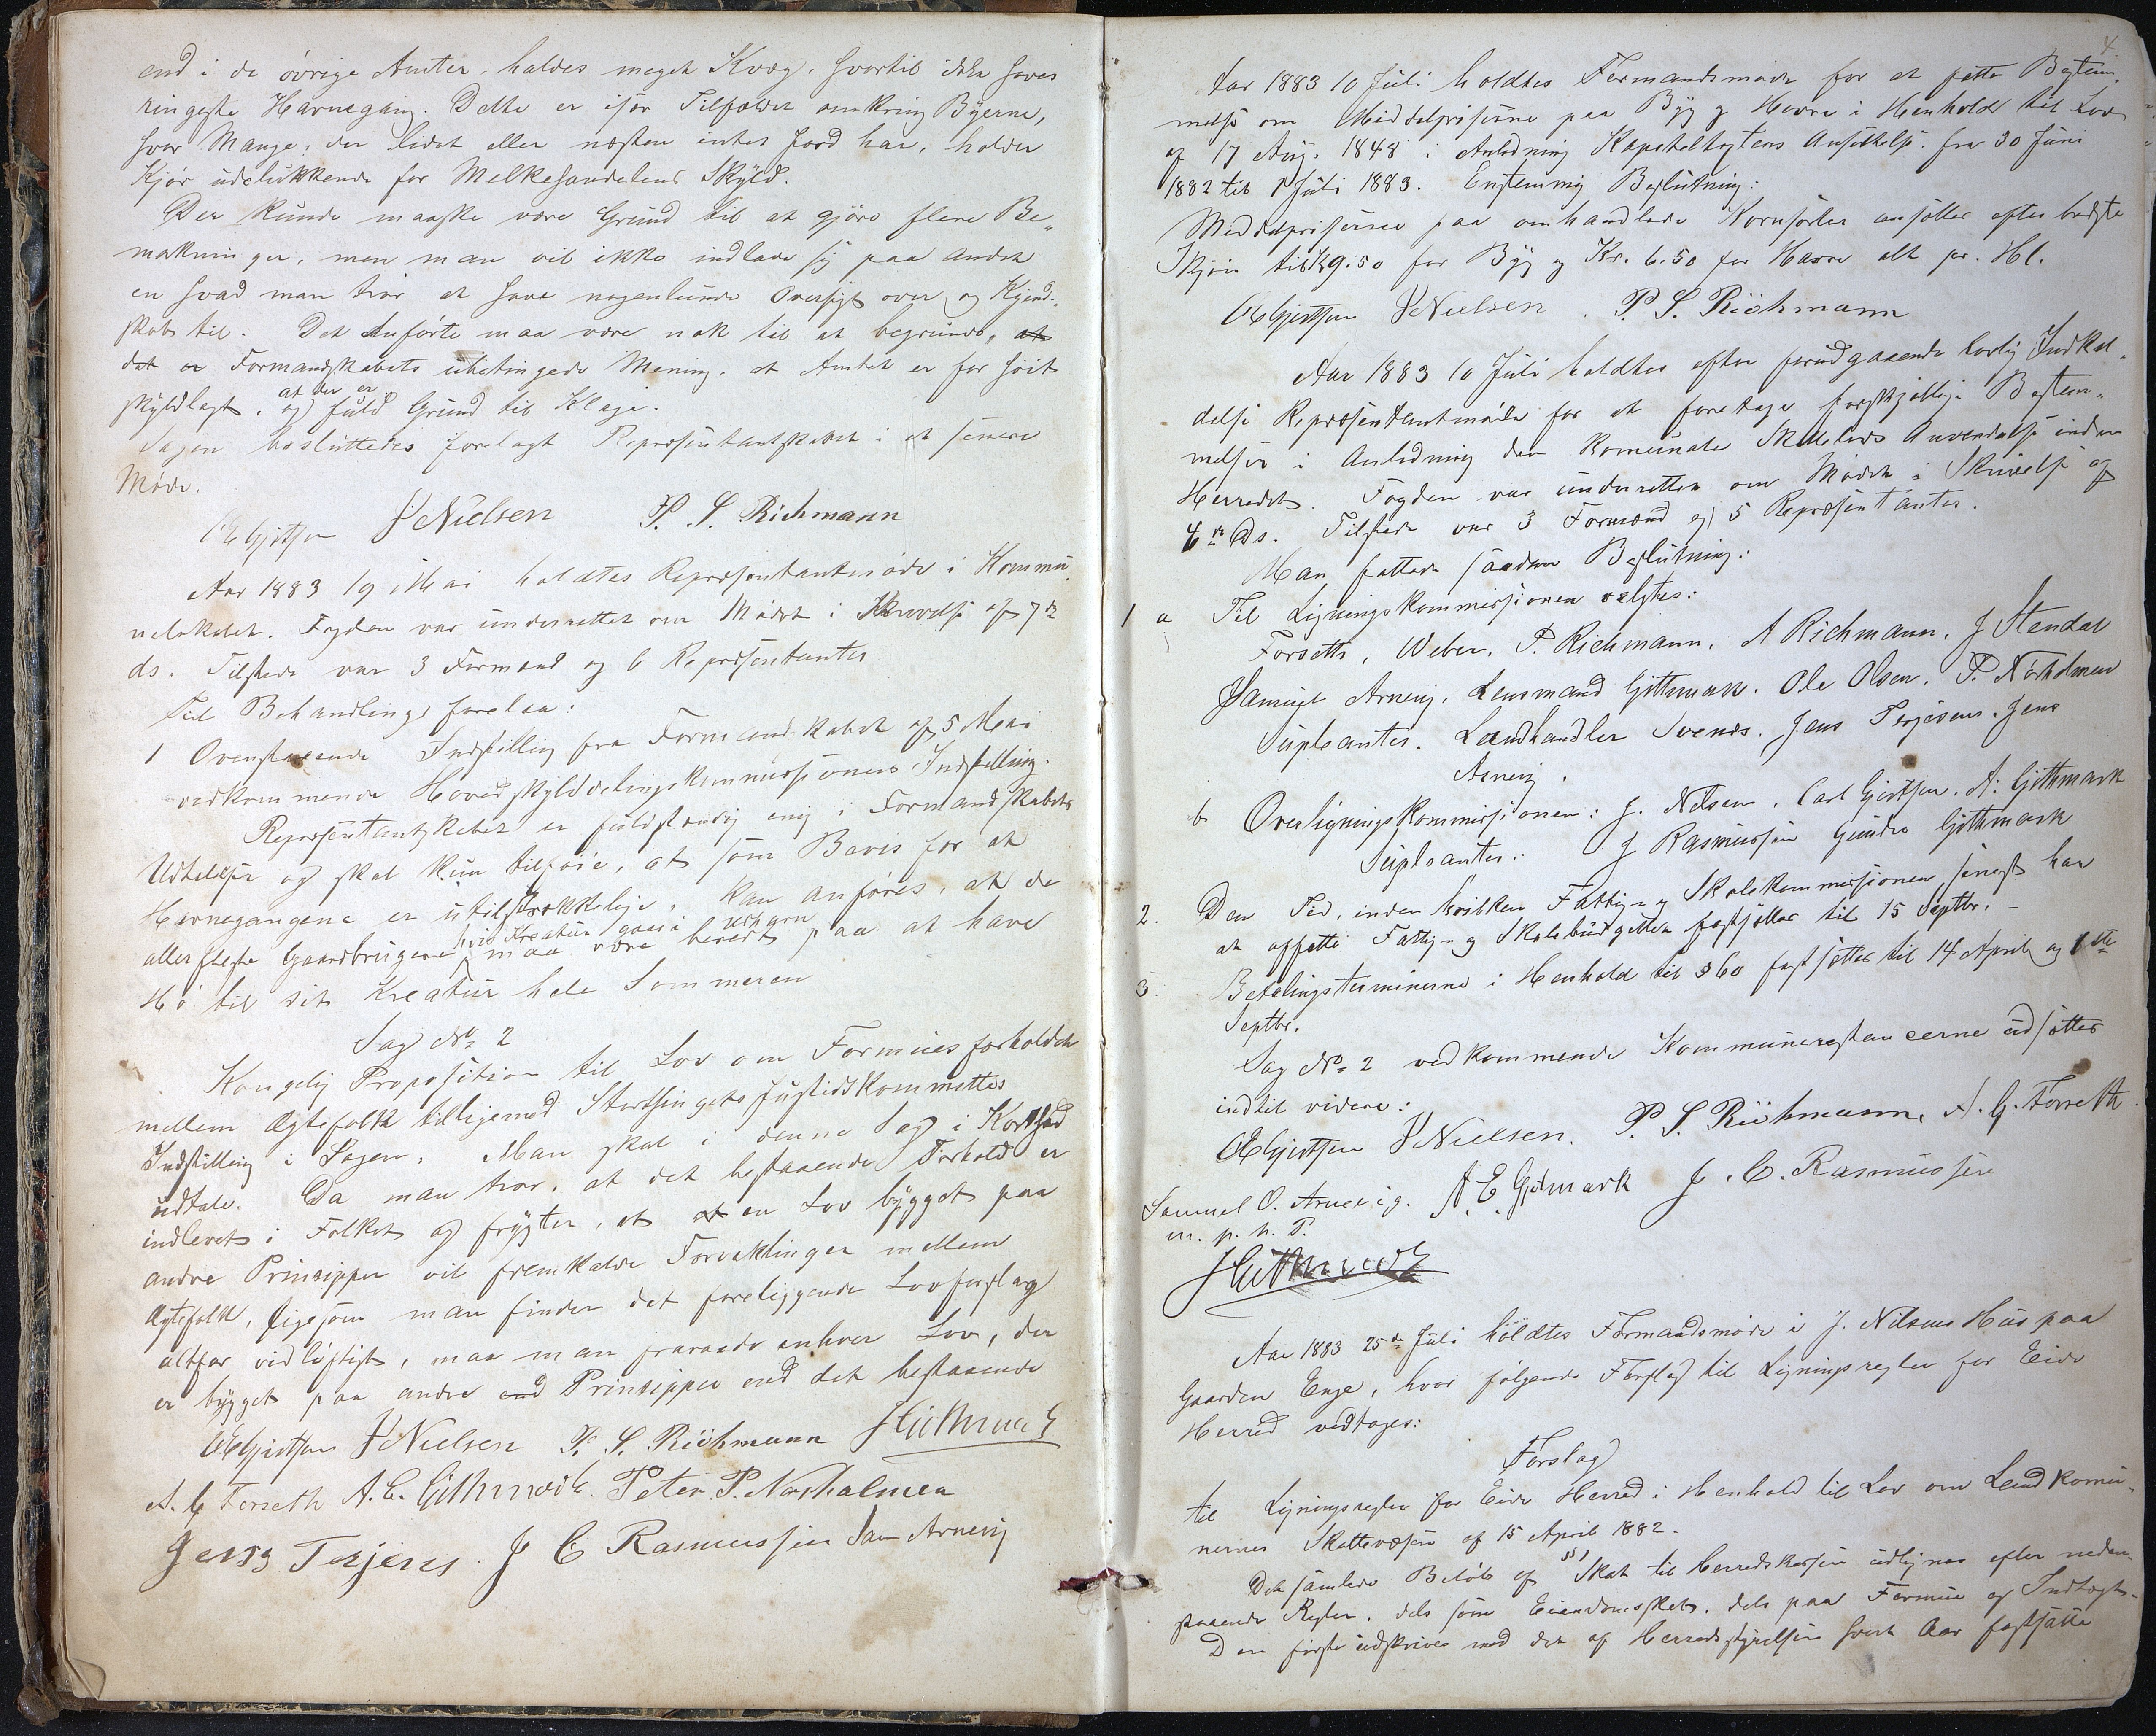 end i de övrige Amter, haldes meget Kvæg, hvortil ikke haves
ringeste Havnegang. Dette er især Tilfældet omkring Byerne,
hvor Mange, der lidet eller næsten intet Jord har, holder
Kjör udelukkende for Melkehandelens Skyld.
Der kunde maaske være Grund til at gjöre flere Be„
mærkninger, men man vil ikke indlade sig paa andet
en hvad man tror at have nogenlunde Oversigt over og Kjend„
skab til. Det Anförte maa være nok til at begrunde, at
det er Formandskabets ubetingede Mening, at Amtet er for höit
skyldlagt, at der er og fuld Grund til Klage.
Sagen besluttedes forelagt Repræsentantskabet i et senere
Möde.
OChGjertsen JNielsen P. S. Richmann
Aar 1883 19 Mai holdtes Repræsentantmöde i Kommu
nelokalet. Fogden var underrettet om Mödet i Skrivelse af 7de
ds. Tilstede var 3 Formænd og 6 Repræsentanter
Til Behandling forelaa:
1 Ovenstaaende Indstilling fra Formandskabet af 5 Mai
vedkommende Hovedskylddelingskommissionens Indstilling.
Repræsentantskabet er fuldstændig enig i Formandskabets
Udtalelser og skal kun tilföie, at som Bevis for at
Havnegangene er utilstrækkelige, kan anföres, at de
allerfleste Gaardbrugere, hvis Kreatur gaar i Udhavn maa være beredt paa at have
Hö til sit Kreatur hele Sommeren
Sag No 2
Kongelig Proposition til Lov om Formuesforholdet
mellem Ægtefolk tilligemed Storthingets Justidskommittes
Indstilling i Sagen. Man skal i denne Sag i Korthed
udtale. Da man tror, at det bestaaende Forhold er
indlevet i Folket og frygter, at at en Lov bygget paa
andre Prinsipper vil fremkalde Forviklinger mellem
Ægtefolk, ligesom man finder det foreliggende Lovforslag
altfor vidlöftigt, maa man fraraade enhver Lov, der
er bygget paa andre end Prinsipper end det bestaaende
OChGjertsen JNielsen P. S. Richmann JGithmark
A. G Forseth A. E. Githmark. Peter P. Norholmen
Jens Terjesen. J C Rasmussen Sam Arnevig
4.
Aar 1883 10 Juli holdtes Formandsmöde for at fatte Bestem„
melse om Middelpriserne paa Byg og Havre i Henhold til Lov
af 17 Aug. 1848 i Anledning Kapiteltaxtens Ansættelse fra 30 Juni
1882 til 1 Juli 1883. Enstemmig Beslutning:
Middelpriserne paa omhandlede Kornsorter ansættes efter bedste
Skjön til Kr 9.50 for Byg og Kr. 6.50 for Havre alt pr. Hl.
OChGjertsen JNielsen. P. S. Richmann
Aar 1883 10 Juli holdtes efter forudgaaende lovlig Indkal„
delse Repræsentantmöde for at foretage forskjellige Bestem„
melser i Anledning den komunale Skattelovs Anvendelse inden
Herredet. Fogden var underrettet om Mödet i Skrivelse af
4de Ds. Tilstede var 3 Formænd og 5 Repræsentanter.
Man fattede saadan Beslutning:
1 a Til Ligningskommissionen valgtes:
Forseth, Weber, P. Richmann, A Richmann, J Stendal
Samuel Arnevig, Lensmand Githmark. Ole Olsen. P. Norholmen
Supleanter. Landhandler Svenes. Jens Terjesen. Jens
Arnevig.
b Overligningskommissionen: J. Nilsen. Carl Gjertsen. A. Githmark
Supleanter: J Rasmussen Gunder Githmark
2. Den Tid, inden hvilken Fattig- og Skolekommissionen senest har
at opsette Fattig- og Skolebudgettet fastsættes til 15 Septbr. –
3. Betalingsterminerne i Henhold til § 60 fastsættes til 14 April og 1ste
Septbr.
Sag No 2 vedkommende Kommunerestancerne udsættes
indtil videre:
OChGjertsen JNielsen. P. S. Richmann, A. G. Forseth
Samuel O. Arnevig. A. E. Gitmark J. C. Rasmussen
m. p. h. P.
JGithmark
Aar 1883 25de Juli holdtes Formandsmöde i J. Nilsens Hus paa
Gaarden Enge, hvor fölgende Forslag til Ligningsregler for Eide
Herred vedtages:
Forslag
til Ligningsregler for Eide Herred i Henhold til Lov om Landkomu„
nernes Skattevæsen af 15 April 1882.
§ 1
Det samlede Belöb af Skat til Herredskassen udlignes efter neden„
staaende Regler, dels som Eiendomsskat, dels paa Formue og Indtægt.
Den förste udskrives med det af Herredsstyrelsen hvert Aar fastsatte